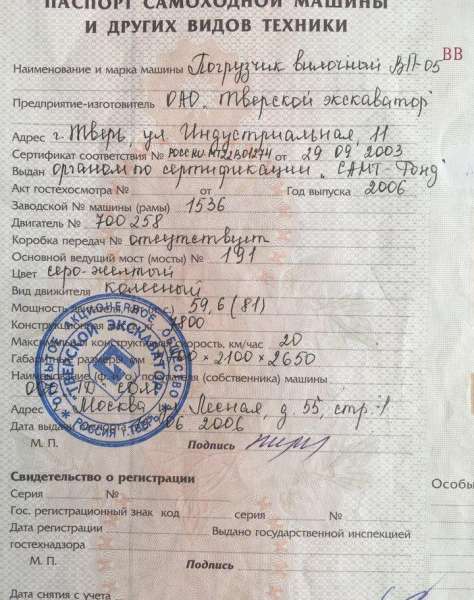 ПАСПОРТ САМОХОДНОЙ МАШИНЫ
И ДРУГИХ ВИДОВ ТЕХНИКИ
ВВ
Наименование и марка машины Погрузчик вилочный ВП-05
Предприятие-изготовитель ОАО "Тверской экскаватор"
Адрес г. Тверь, ул. Индустриальная, 11
Сертификат соответствия № РОСС RU.МТ22.В01274 от 29 09 2003
Выдан органом по сертификации "САМТ-Фонд"
Акт гостехосмотра № от Год выпуска 2006
Заводской № машины (рамы) 1536
Двигатель № 700258
Коробка передач № отсутствует
Основной ведущий мост (мосты) № 191
Цвет серо-желтый
Вид движителя Колесный
Мощность 59,6 (81)
Конструкционная
Максимальная конструктивная скорость, км/час 20
Габаритные размеры, мм ×2100×2650
Наименование покупателя (собственника) машины
Адрес Москва ул Лесная, д. 55, стр. 1
Дата выдачи 06 2006
М. П. Подпись
ОТКРЫТОЕ АКЦИОНЕРНОЕ ОБЩЕСТВО
"ТВЕРСКОЙ ЭКСКАВАТОР"
РОССИЯ г. ТВЕРЬ
Свидетельство о регистрации
Особы
Серия №
Гос. регистрационный знак код серия №
Дата регистрации Выдано государственной инспекцией
гостехнадзора
М. П. Подпись
Дата снятия с учета